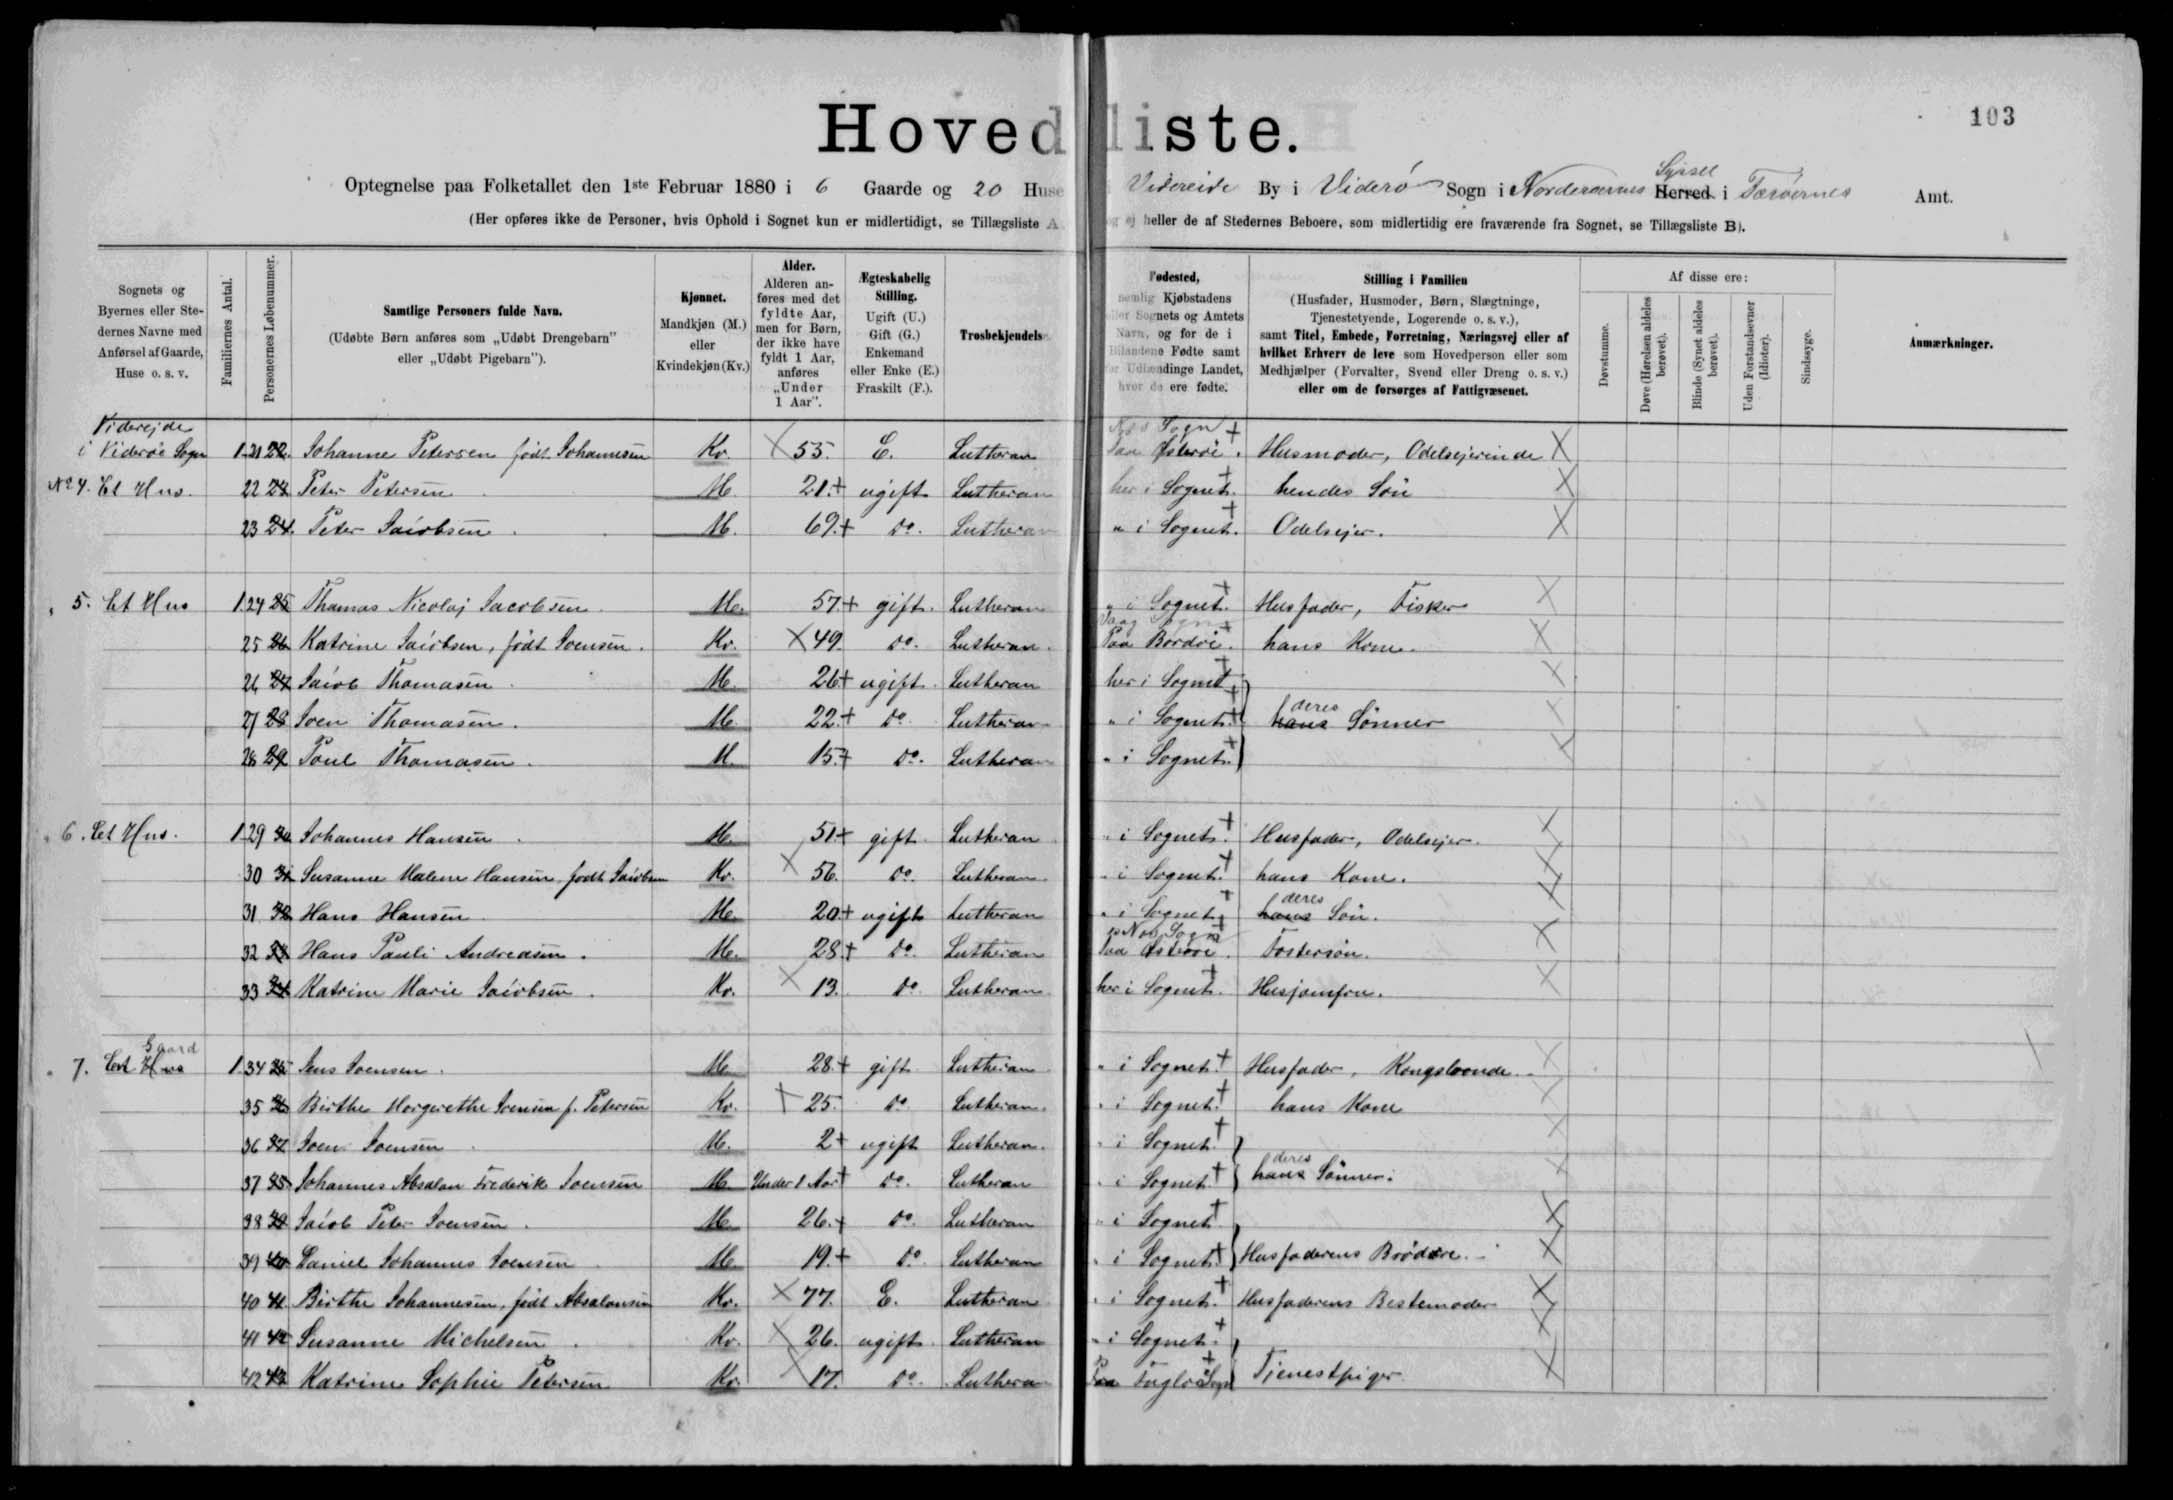 Hovedliste.
103
Optegnelse paa Folketallet den 1ste Februar 1880 i 6 Gaarde og 20 Huse i Videreide By i Viderö Sogn i Norderøernes Herred Syssel i Færöernes Amt.
(Her opføres ikke de Personer, hvis Ophold i Sognet kun er midlertidigt, se Tillægsliste A, og ej heller de af Stedernes Beboere, som midlertidig ere fraværende fra Sognet, se Tillægsliste B).
Sognets og Byernes eller Stedernes Navne med Anførsel af Gaarde, Huse o. s. v.
Familiernes Antal.
Personernes Løbenummer.
Samtlige Personers fulde Navn.
(Udøbte Børn anføres som „Udøbt Drengebarn" eller „Udøbt Pigebarn").
Kjønnet.
Mandkjøn (M.) eller Kvindekjøn (Kv.)
Alder.
Alderen anføres med det fyldte Aar, men for Børn, der ikke have fyldt 1 Aar, anføres „Under 1 Aar".
Ægteskabelig Stilling.
Ugift (U.) Gift (G.) Enkemand eller Enke (E.) Fraskilt (F.).
Trosbekjendelse
Fødested,
nemlig Kjøbstadens eller Sognets og Amtets Navn, og for de i Bilandene Fødte samt for Udlændinge Landet, hvor de ere fødte.
Stilling i Familien
(Husfader, Husmoder, Børn, Slægtninge, Tjenestetyende, Logerende o. s. v.),
samt Titel, Embede, Forretning, Næringsvej eller af hvilket Erhverv de leve som Hovedperson eller som Medhjælper (Forvalter, Svend eller Dreng o. s. v.) eller om de forsørges af Fattigvæsenet.
Af disse ere:
Døvstumme.
Døve (Hørelsen aldeles berøvet).
Blinde (Synet aldeles berøvet).
Uden Forstandsevner (Idioter).
Sindssyge.
Anmærkninger.
Viderejde
i Videröe Sogn 1 21 22. Johanne Petersen født Johannesen Kv. 55. E. Lutheran Sogn Paa Østeröe. Husmoder, Odelsejerinde
No 4. Et Hus. 22 23 Peter Petersen M. 21. ugift Lutheran her i Sognet. hendes Sön
23 24. Peter Jacobsen M. 69. do. Lutheran " i Sognet. Odelsejer.
" 5. Et Hus 1. 24 25 Thomas Nicolaj Jacobsen M. 57 gift. Lutheran " i Sognet. Husfader, Fisker
25 26 Katrine Jacobsen, född Joensen. Kv. 49. do. Lutheran. Vaag Sogn Paa Bordöe. hans Kone.
26 27 Jacob Thomasen M. 26 ugift. Lutheran her i Sognet
27 28 Joen Thomasen. M. 22. do. Lutheran " i Sognet. hans deres Sönner
28 29 Poul Thomasen. M. 15. do. Lutheran " i Sognet.
" 6. Et Hus. 1. 29 30 Johannes Hansen M. 51 gift Lutheran " i Sognet. Husfader, Odelsejer.
30 31 Susanne Malene Hansen, født Jacobsen Kv. 56. do. Lutheran. " i Sognet. hans Kone.
31 32 Hans Hansen M. 20 ugift Lutheran " i Sognet. hans deres Sön.
32 33 Hans Pauli Andreasen. M. 28. do. Lutheran Sogn Paa Østeröe. Fostersön.
33 34 Katrine Marie Jacobsen. Kv. 13. do. Lutheran. her i Sognet. Husjomfru.
" 7. Et Hus Gaard 1. 34 35 Jens Joensen. M. 28. gift Lutheran. " i Sognet. Husfader, Kongsbonde.
35 36 Birthe Margrethe Joensen f. Petersen Kv. 25. do. Lutheran. " i Sognet. hans Kone
36 37 Joen Joensen M. 2 ugift Lutheran. " i Sognet.
37 38 Johannes Absalon Frederik Joensen M. Under 1 Aar do. Lutheran " i Sognet. hans deres Sönner.
38 39 Jacob Peter Joensen. M. 26. do. Lutheran " i Sognet
39 40 Daniel Johannes Joensen M. 19. do. Lutheran " i Sognet. Husfaderens Brödre.
40 41 Birthe Johannesen, født Absalonsen Kv. 77. E. Lutheran " i Sognet. Husfaderens Bestemoder
41 42 Susanne Michelsen. Kv. 26. ugift Lutheran " i Sognet.
42 43 Katrine Sophie Petersen Kv. 17. do. Lutheran Paa Fuglöe Sogn Tjenestpiger